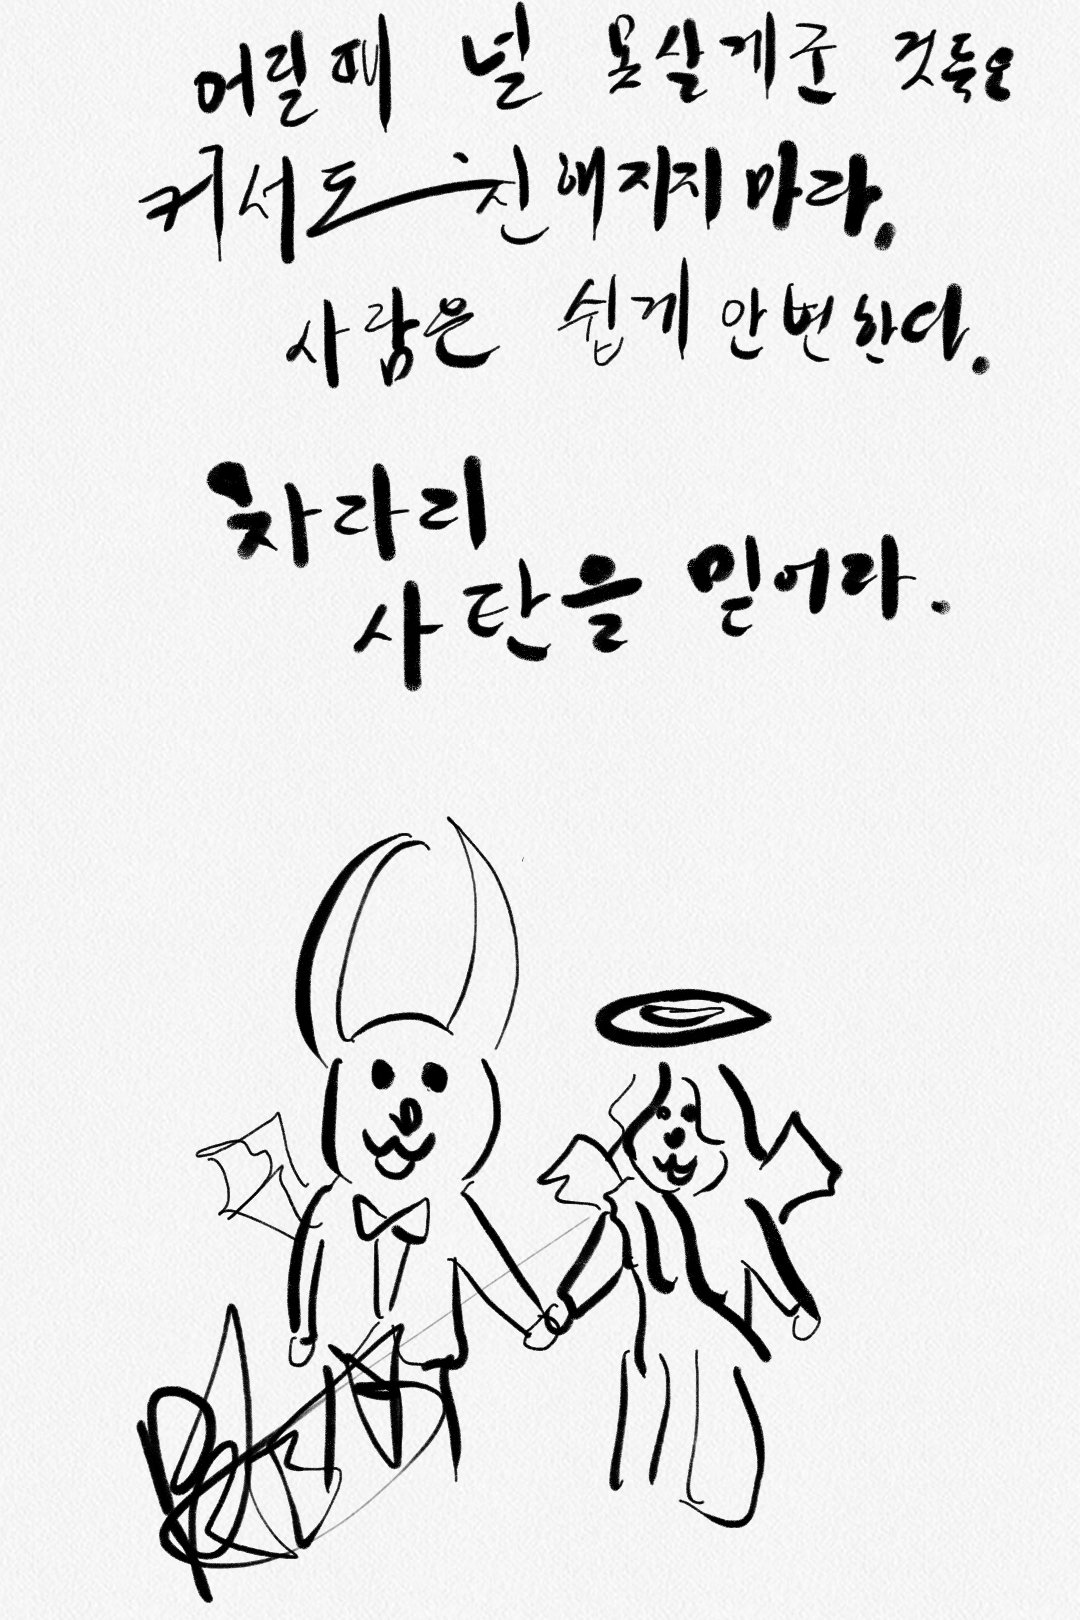 어릴때 널 못살게군 것들은
커서도 친해지지마라.
사람은 쉽게 안변한다.
차라리
사탄을 믿어라.